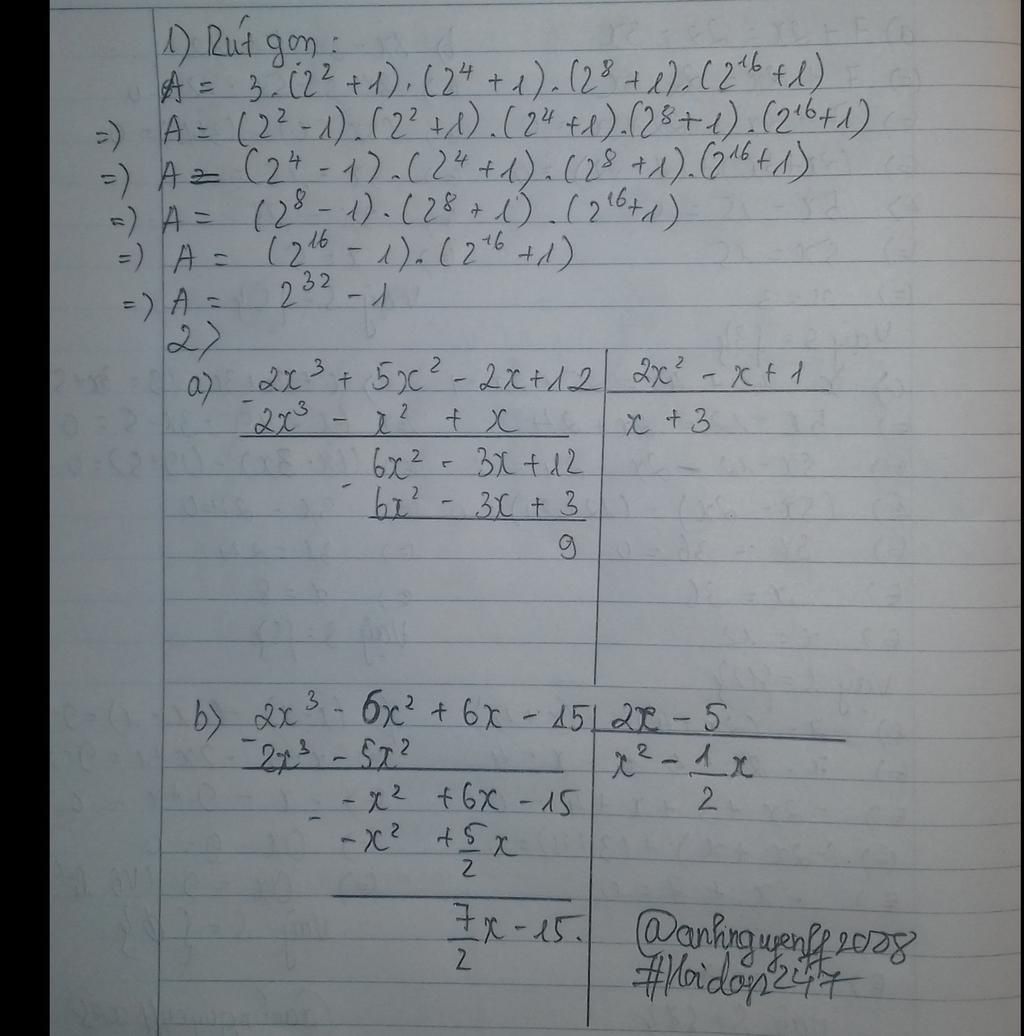 1) Rút gọn:
A = 3.(2² + 1).(2⁴ + 1).(2⁸ + 1).(2¹⁶ + 1)
=) A = (2² - 1).(2² + 1).(2⁴ + 1).(2⁸ + 1).(2¹⁶ + 1)
=) A = (2⁴ - 1).(2⁴ + 1).(2⁸ + 1).(2¹⁶ + 1)
=) A = (2⁸ - 1).(2⁸ + 1).(2¹⁶ + 1)
=) A = (2¹⁶ - 1).(2¹⁶ + 1)
=) A = 2³² - 1
2)
a) 2x³ + 5x² - 2x + 12 | 2x² - x + 1
- 2x³ - x² + x | x + 3
6x² - 3x + 12
- 6x² - 3x + 3
9
b) 2x³ - 6x² + 6x - 15 | 2x - 5
- 2x³ - 5x² | x² - 1/2 x
- x² + 6x - 15
- - x² + 5/2 x
7/2 x - 15.
@anhnguyenff2008
#Hoidap247